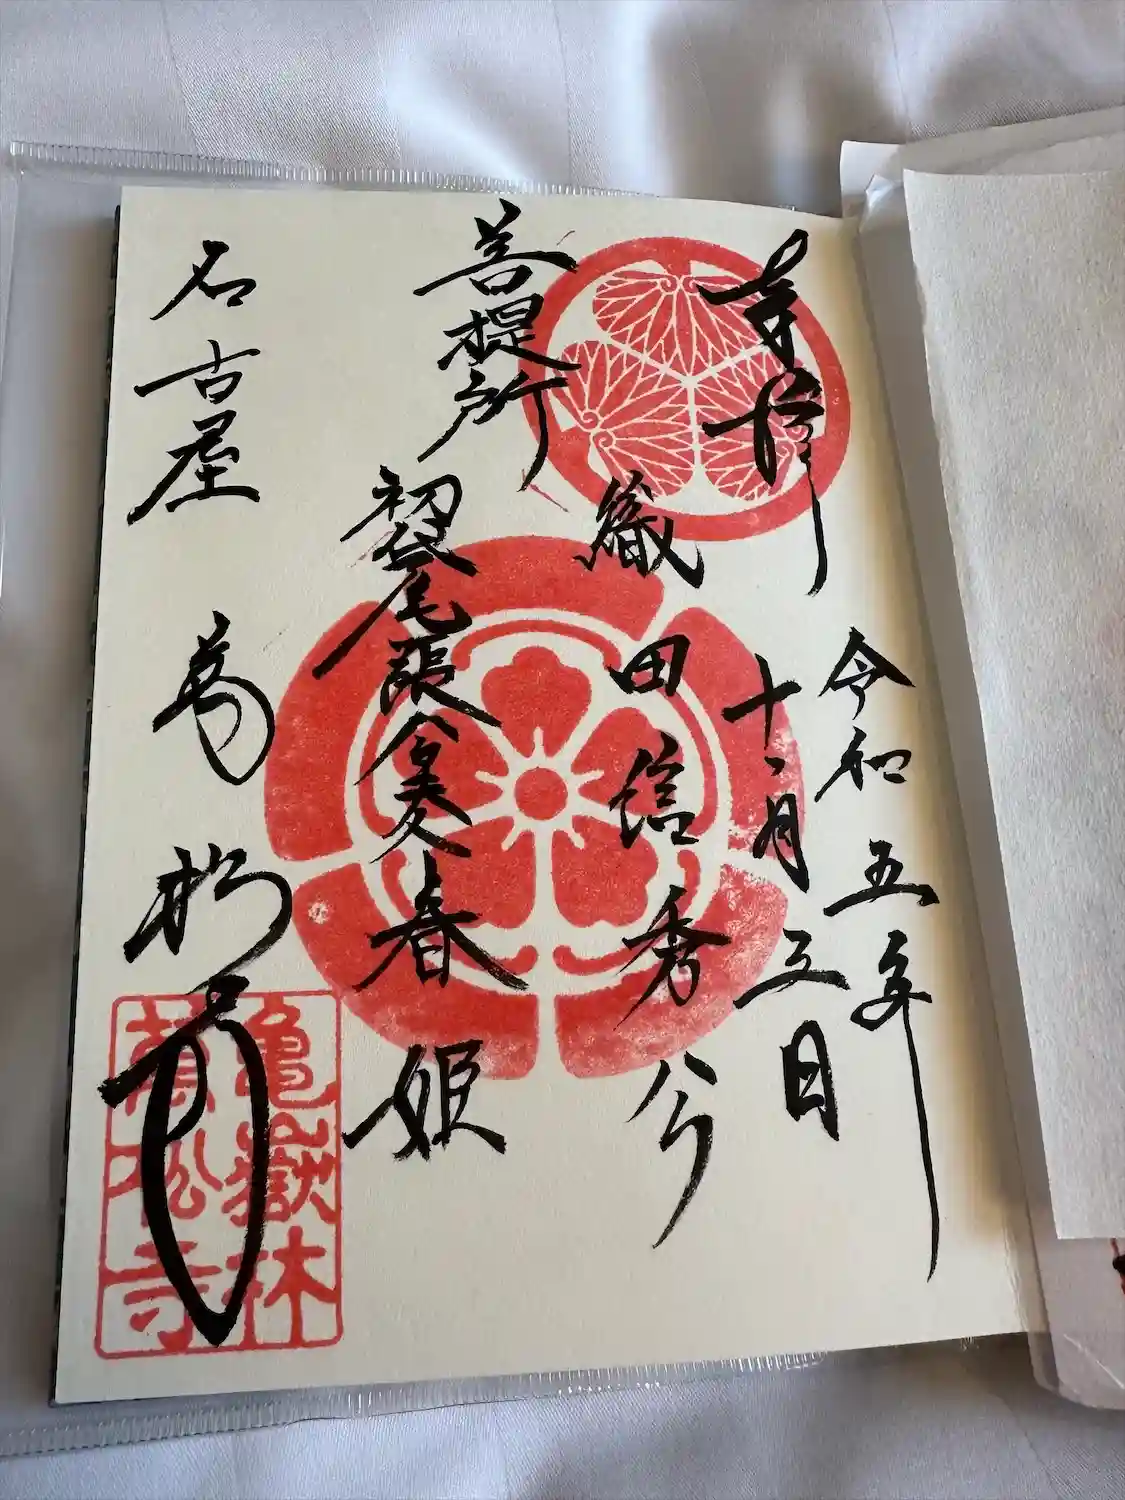 奉拝
令和五年
十一月三日
織田信秀公
菩提所
初代尾張公奥春姫
名古屋
萬松寺
亀嶽林
萬松寺